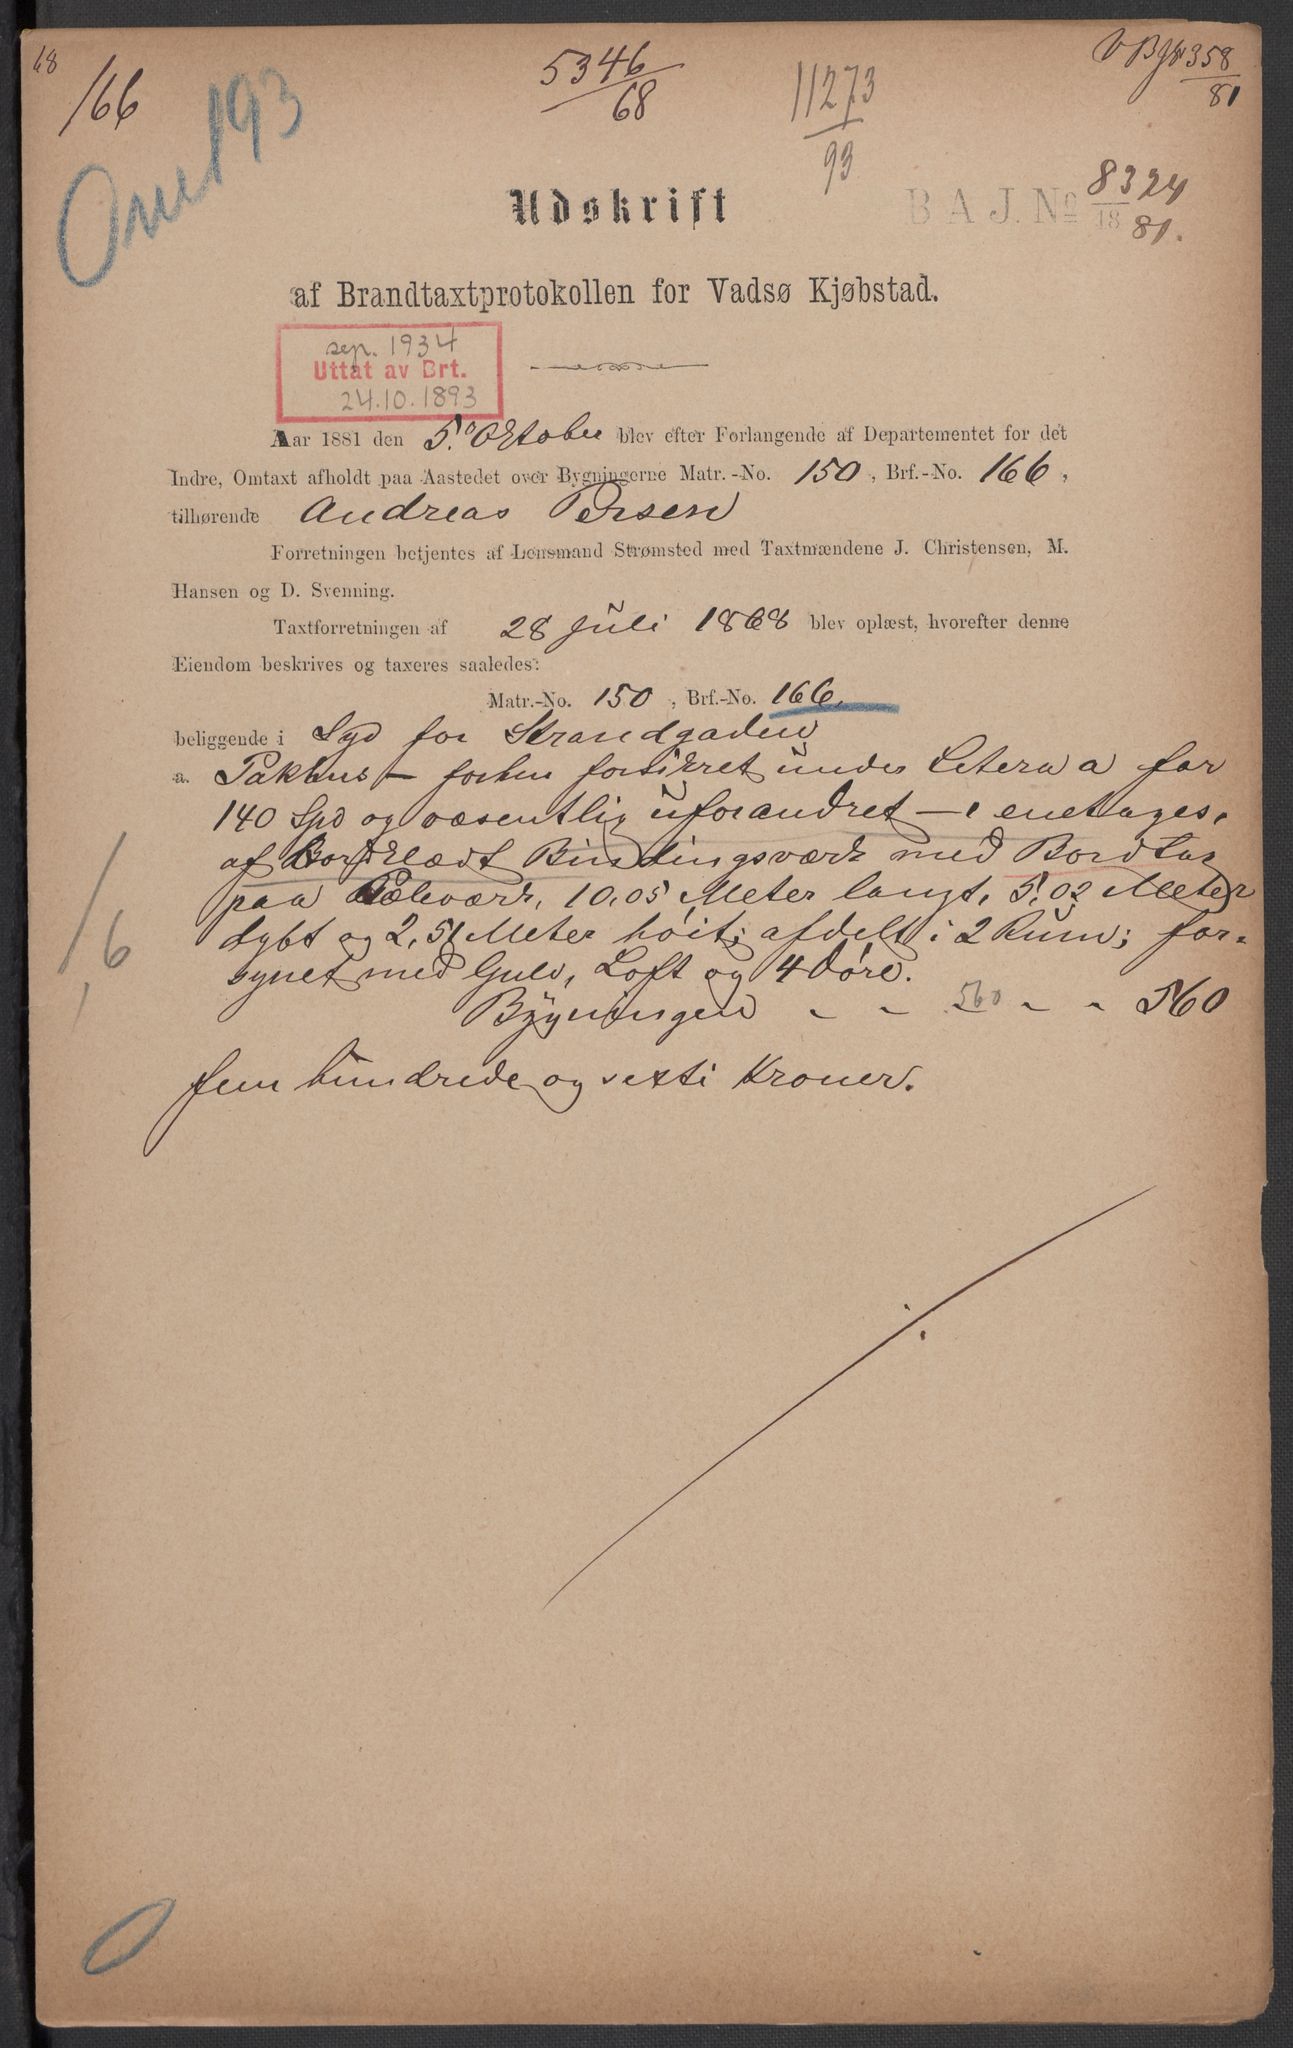 68
166
5346
68
11273
93
358
81
193
Udskrift
B A J. No 8324
1881.
af Brandtaxtprotokollen for Vadsø Kjøbstad.
sep. 1934
Uttat av Brt.
24.10.1893
Aar 1881 den 5. Oktober blev efter Forlangende af Departementet for det
Indre, Omtaxt afholdt paa Aastedet over Bygningerne Matr.-No. 150, Brf.-No. 166,
tilhørende Andreas Persen
Forretningen betjentes af Lensmand Strømsted med Taxtmændene J. Christensen, M.
Hansen og D. Svenning.
Taxtforretningen af 28 Juli 1868 blev oplæst, hvorefter denne
Eiendom beskrives og taxeres saaledes:
Matr.-No. 150, Brf.-No. 166.
beliggende i Syd for Strandgaden
a. Pakhus – forhen forsikret under Litera a for
140 Spd og væsentlig uforandret – enetages,
af Bordklædt Bindingsværk med Bordtag
paa Pæleværk, 10,05 Meter langt, 5,02 Meter
dybt og 2,51 Meter høit; afdelt i 2 Rum; for-
synet med Gulv, Loft og 4 Døre.
Bygningen - - 560 - - 560
fem hundrede og sexti Kroner.
1/6